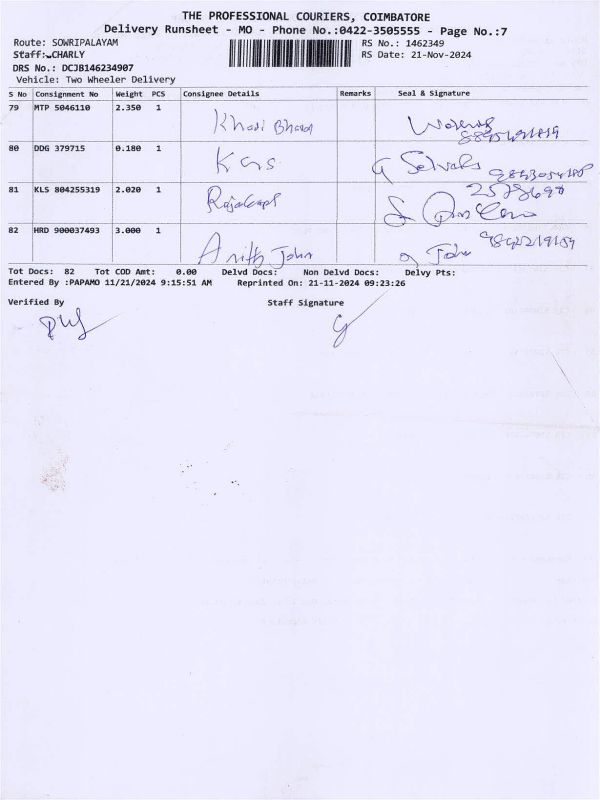 THE PROFESSIONAL COURIERS, COIMBATORE
Delivery Runsheet - MO - Phone No.:0422-3505555 - Page No.:7
Route: SOWRIPALAYAM RS No.: 1462349
Staff: CHARLY RS Date: 21-Nov-2024
DRS No.: DCJB146234907
Vehicle: Two Wheeler Delivery
S No Consignment No Weight PCS Consignee Details Remarks Seal & Signature
79 MTP 5046110 2.350 1 Khadi Bhavan
80 DDG 379715 0.180 1 KGS G Selvak
81 KLS 804255319 2.020 1
82 HRD 900037493 3.000 1 Anith John John
Tot Docs: 82 Tot COD Amt: 0.00 Delvd Docs: Non Delvd Docs: Delvy Pts:
Entered By :PAPAMO 11/21/2024 9:15:51 AM Reprinted On: 21-11-2024 09:23:26
Verified By Staff Signature